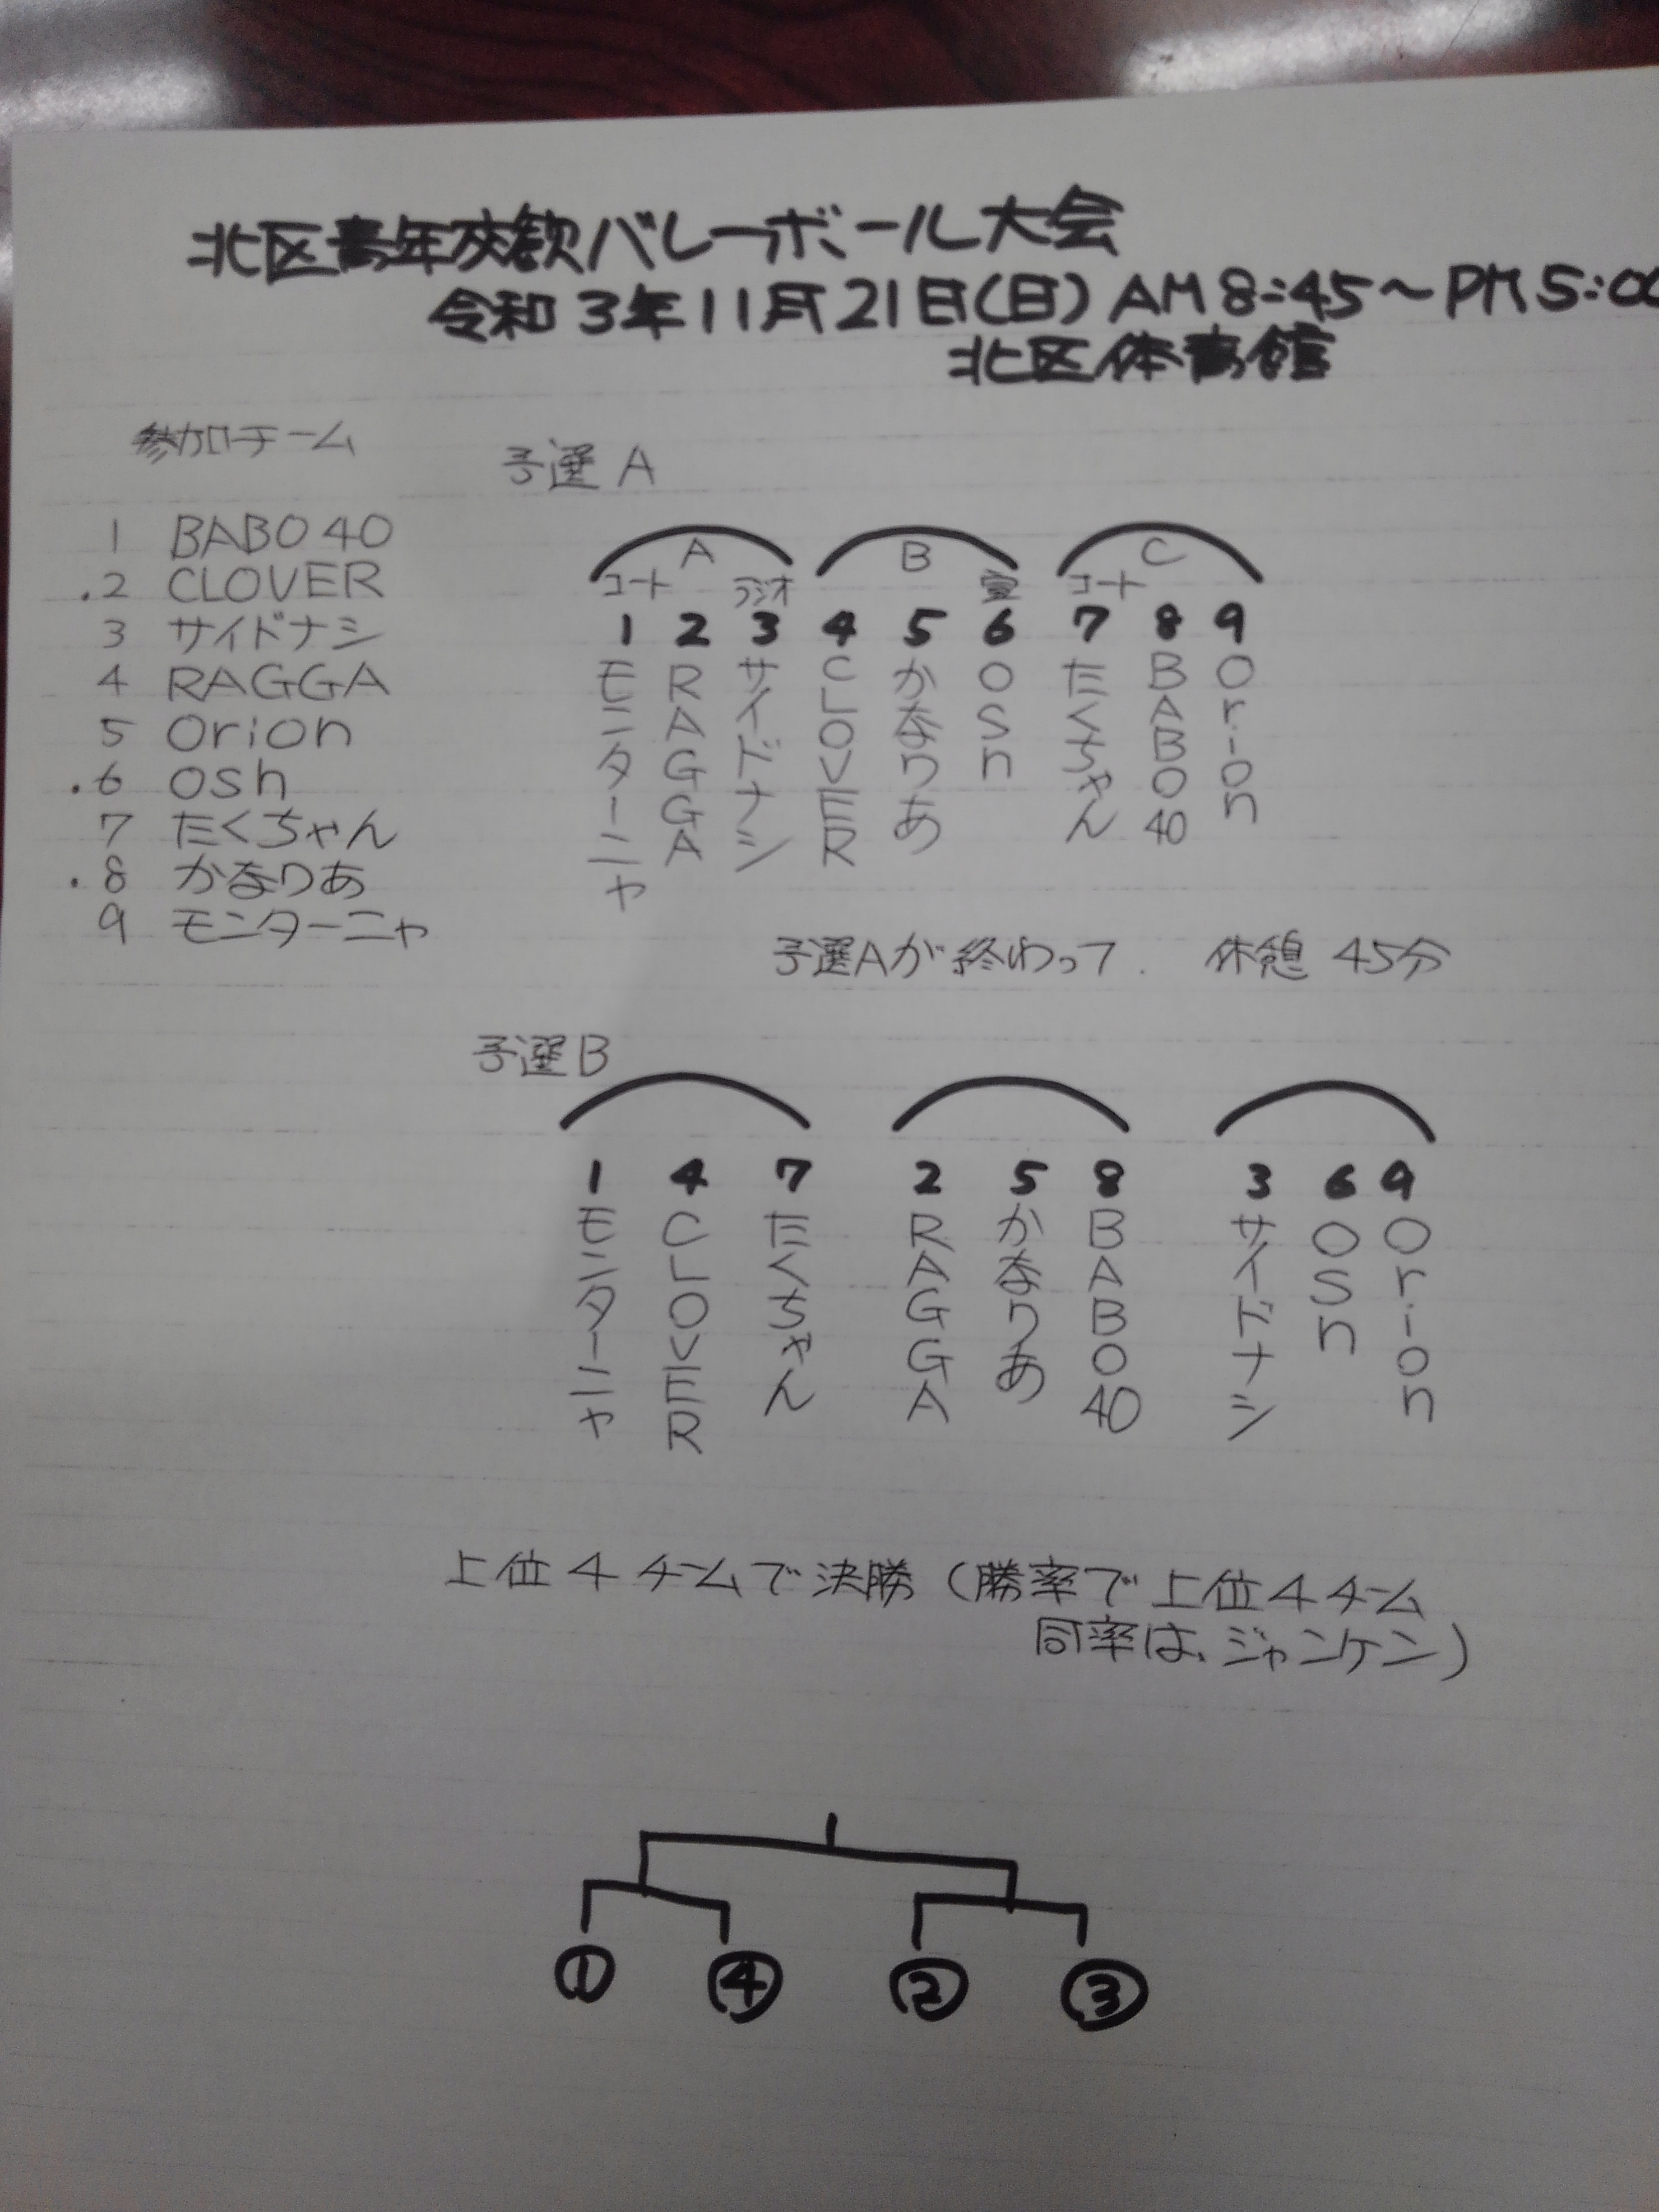 北区青年交歓バレーボール大会
令和3年11月21日(日) AM 8:45〜PM 5:00
北区体育館
参加チーム
1 BABO 40
.2 CLOVER
3 サイドナシ
4 RAGGA
5 Orion
.6 osh
7 たくちゃん
.8 かなりあ
9 モンターニャ
予選 A
A
コート ラジオ
1 2 3
モンターニャ
RAGGA
サイドナシ
B
宣
4 5 6
CLOVER
かなりあ
osh
C
コート
7 8 9
たくちゃん
BABO40
Orion
予選Aが終わって. 休憩 45分
予選B
1 4 7
モンターニャ
CLOVER
たくちゃん
2 5 8
RAGGA
かなりあ
BABO40
3 6 9
サイドナシ
osh
Orion
上位4チームで決勝(勝率で上位4チーム
同率は、ジャンケン)
① ④ ② ③